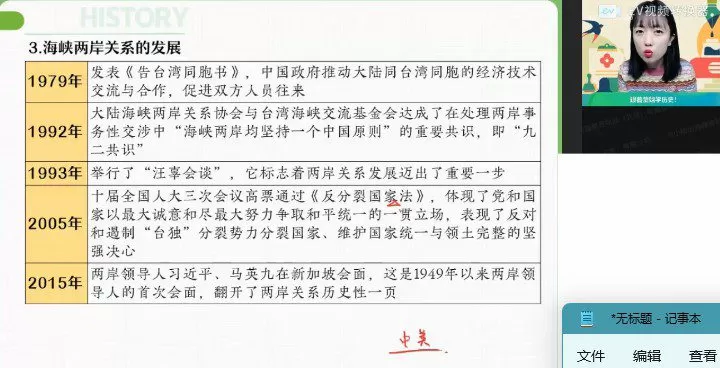 HISTORY
3.海峡两岸关系的发展
1979年
发表《告台湾同胞书》，中国政府推动大陆同台湾同胞的经济技术
交流与合作，促进双方人员往来
1992年
大陆海峡两岸关系协会与台湾海峡交流基金会达成了在处理两岸事
务性交涉中“海峡两岸均坚持一个中国原则”的重要共识，即“九
二共识”
1993年
举行了“汪辜会谈”，它标志着两岸关系发展迈出了重要一步
2005年
十届全国人大三次会议高票通过《反分裂国家法》，体现了党和国
家以最大诚意和尽最大努力争取和平统一的一贯立场，表现了反对
和遏制“台独”分裂势力分裂国家、维护国家统一与领土完整的坚
强决心
2015年
两岸领导人习近平、马英九在新加坡会面，这是1949年以来两岸领
导人的首次会面，翻开了两岸关系历史性一页
中美
EV视频转换器
*无标题 - 记事本
文件 编辑 查看